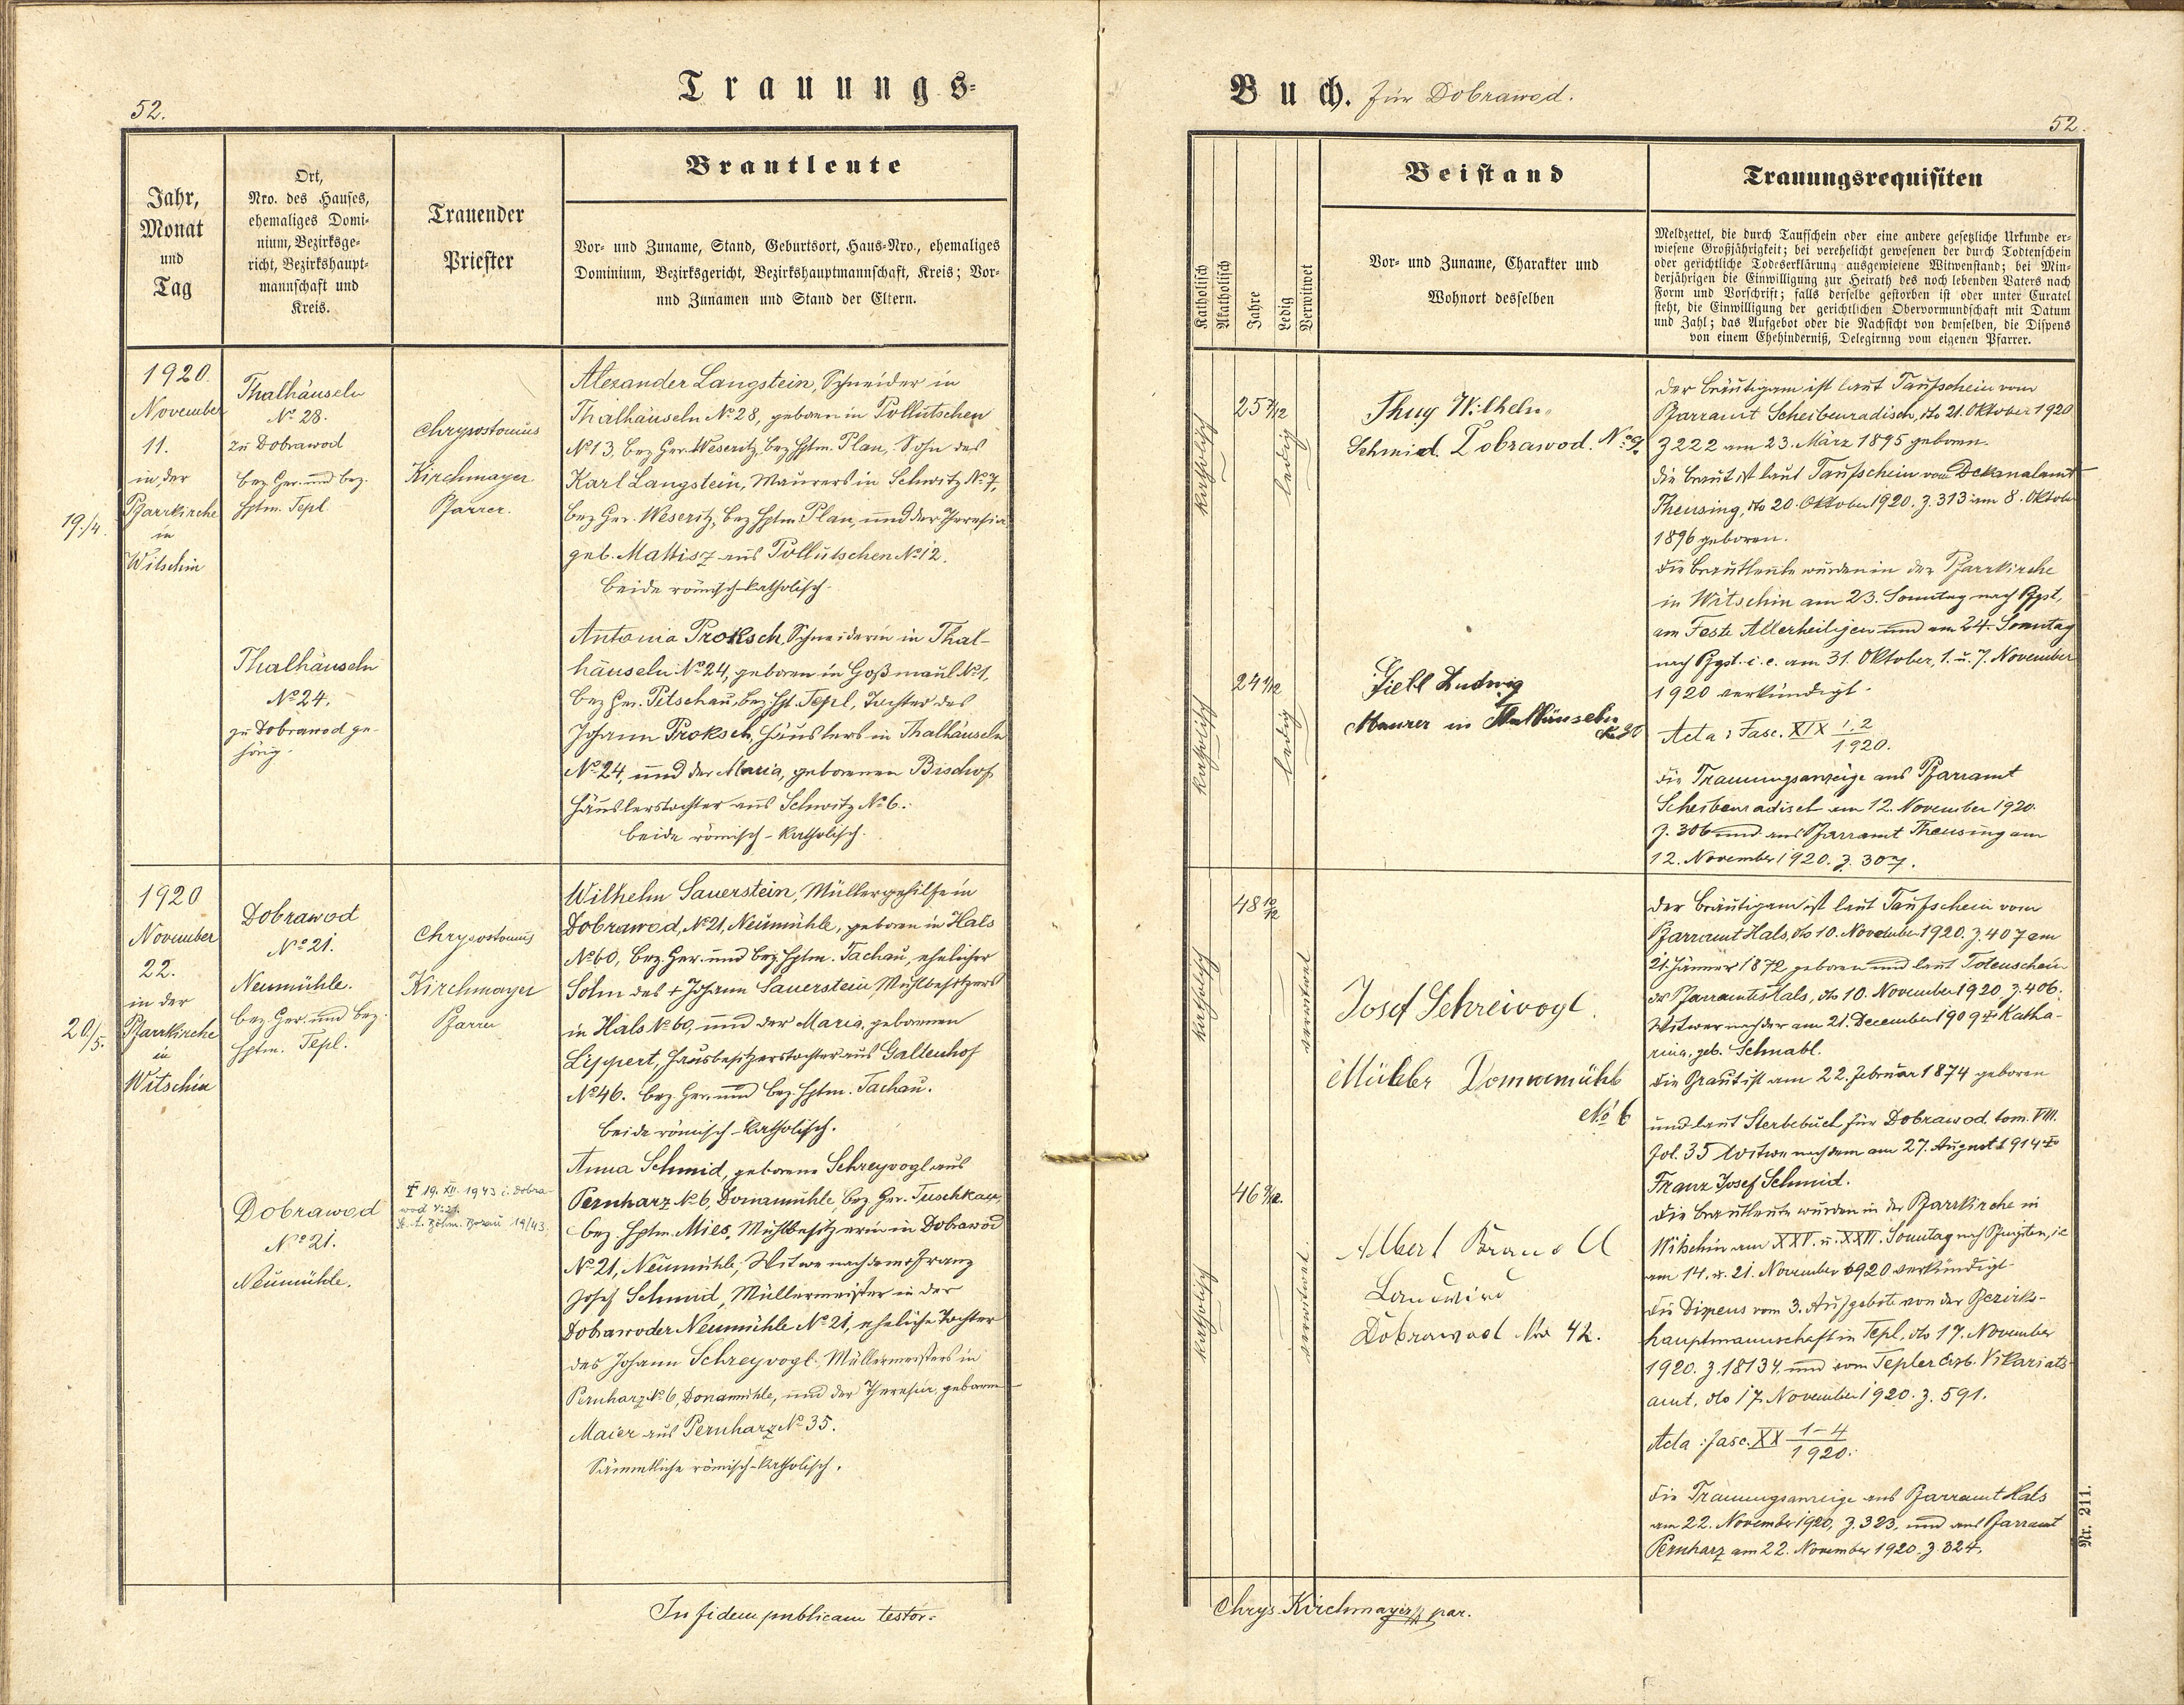 52.
Trauungs=
Jahr,
Monat
und
Tag
Ort,
Nro. des Hauses,
ehemaliges Domi-
nium, Bezirksge-
richt, Bezirkshaupt-
mannschaft und
Kreis.
Trauender
Priester
Brautleute
Vor- und Zuname, Stand, Geburtsort, Haus-Nro., ehemaliges
Dominium, Bezirksgericht, Bezirkshauptmannschaft, Kreis; Vor-
und Zunamen und Stand der Eltern.
19./4.
1920.
November
11.
in der
Pfarrkirche
in
Witschin
Thalhäuseln
No 28.
zu Dobrawod
bez. Ger. und bez.
Hptm. Tepl
Chrysostomus
Kirchmayer
Pfarrer.
Alexander Langstein, Schneider in
Thalhäuseln No 28, geboren in Pollutschen
No 13, bez. Ger. Weseritz, bez. Hptm. Plan, Sohn des
Karl Langstein, Maurers in Schwitz No 7,
bez. Ger. Weseritz, bez. Hptm. Plan, und der Theresia
geb. Mattisz aus Pollutschen No 12.
beide römisch-katholisch.
Thalhäuseln
No 24.
zu Dobrawod ge-
hörig.
Antonia Proksch, Schneiderin in Thal-
häuseln No 24, geboren in Goßmaul No 1,
bez. Ger. Petschau, bez. Hpt. Tepl, Tochter des
Johann Proksch, Häuslers in Thalhäuseln
No 24, und der Maria, geborenen Bischof
Häuslerstochter aus Schwitz No 6.
beide römisch-katholisch.
20/5.
1920
November
22.
in der
Pfarrkirche
in
Witschin
Dobrawod
No 21.
Neumühle.
bez. Ger. und bez.
Hptm. Tepl.
Chrysostomus
Kirchmayer
Pfarrer
Wilhelm Sauerstein, Müllergehilfe in
Dobrawod, No 21, Neumühle, geboren in Hals
No 60, bez. Ger. und bez. Hptm. Tachau, ehelicher
Sohn des + Johann Sauerstein, Mühlbesitzers
in Hals No 60, und der Maria, geborenen
Lippert, Hausbesitzerstochter aus Galtenhof
No 46. bez. Ger. und bez. Hptm. Tachau.
beide römisch-katholisch.
Dobrawod
No 21.
Neumühle.
† 19. XII. 1943 i. Dobra-
wod 21.
Böhm. Borau 19/43.
Anna Schmid, geborene Schreyvogl aus
Pernharz No 6, Donamühle, bez. Ger. Tuschkau,
bez. Hptm. Mies, Mühlbesitzerin in Dobrawod
No 21, Neumühle; Witwe nach dem + Franz
Josef Schmid, Müllermeister in der
Dobrawoder Neumühle No 21, eheliche Tochter
des Johann Schreyvogl, Müllermeisters in
Pernharz No 6, Donamühle, und der Theresia, geborene
Maier aus Pernharz No 35.
Sämmtliche römisch-katholisch.
In fidem publicam testor:
Buch. für Dobrawod.
52.
Katholisch
Akatholisch
Jahre
Ledig
Verwitwet
Beistand
Vor- und Zuname, Charakter und
Wohnort desselben
Trauungsrequisiten
Meldzettel, die durch Taufschein oder eine andere gesetzliche Urkunde er-
wiesene Großjährigkeit; bei verehelicht gewesenen der durch Todtenschein
oder gerichtliche Todeserklärung ausgewiesene Witwenstand; bei Min-
derjährigen die Einwilligung zur Heirath des noch lebenden Vaters nach
Form und Vorschrift; falls derselbe gestorben ist oder unter Curatel
steht, die Einwilligung der gerichtlichen Obervormundschaft mit Datum
und Zahl; das Aufgebot oder die Nachsicht von demselben, die Dispens
von einem Ehehinderniß, Delegirung vom eigenen Pfarrer.
katholisch
25 7/12
ledig
Thuy Wilhelm
Schmied. Dobrawod. No 9.
katholisch
24 1/12
ledig
Ludwig
Maurer in Thalhäuseln
No 20
der Bräutigam ist laut Taufschein vom
Pfarramt Scheibenradisch, dto 21. Oktober 1920
Z 222 am 23. März 1895 geboren.
die Braut ist laut Taufschein vom Dekanalamt
Theusing, dto 20. Oktober 1920. Z. 313 am 8. Oktober
1896 geboren.
die Brautleute wurden in der Pfarrkirche
in Witschin am 23. Sonntag nach Pfgst,
am Feste Allerheiligen und am 24. Sonntag
nach Pfgst. i. e. am 31. Oktober, 1. u. 7. November
1920 verkündigt.
Acta: Fasc. XIX 1, 2/1920.
die Trauungsanzeige ans Pfarramt
Scheibenradisch am 12. November 1920.
Z. 306 und ans Pfarramt Theusing am
12. November 1920. Z. 307.
katholisch
48 10/12
verwitwet
Josef Schreivogl.
Müller Donnamühle
No 6
katholisch
46 9/12.
verwitwet.
Albert
Landwirt
Dobrawod Nro 42.
der Bräutigam ist laut Taufschein vom
Pfarramt Hals, dto 10. November 1920. Z. 407 am
21. Jänner 1872 geboren und laut Totenschein
des Pfarramtes Hals, dto 10. November 1920, Z. 406.
Witwer nach der am 21. December 1909 † Katha-
rina, geb. Schnabl.
die Braut ist am 22. Februar 1874 geboren
und laut Sterbebuch für Dobrawod. tom. VIII.
fol. 35 Witwe nach dem am 27. August 1914 †
Franz Josef Schmid.
die Brautleute wurden in der Pfarrkirche in
Witschin am XXV. u. XXVI. Sonntag nach Pfingsten, ie
am 14. u. 21. November 1920 verkündigt.
die Dispens vom 3. Aufgebote von der Bezirks-
hauptmannschaft in Tepl, dto 17. November
1920. Z. 18134 und vom Tepler Erzb. Vikariats-
amt, dto 17. November 1920. Z. 591.
Acta: fasc. XX 1-4/1920.
die Trauungsanzeige ans Pfarramt Hals
am 22. November 1920, Z. 323, und ans Pfarramt
Pernharz am 22. November 1920. Z. 324.
Nr. 211.
Chrys. Kirchmayer par.